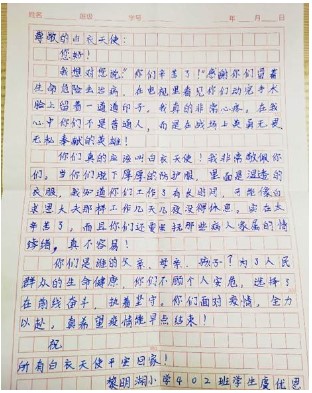 姓名 班级 学号 年 月 日
尊敬的白衣天使:
您好!
我想对您说:"你们辛苦了!"感谢你们冒着
生命危险去治病,在电视里看见你们动完手术
脸上留着一道道印子,我真的非常心疼,在我
心中你们不是普通人,而是在战场上英勇无畏、
无私奉献的英雄!
你们真的应该叫白衣天使!我非常敬佩你
们,当你们脱下厚厚的防护服,里面是湿透的
衣服,我知道你们工作了有长时间,可能像白
求恩大夫那样工作几天几夜没得休息,实在太
辛苦了,而且你们还要重视那些病人家属的情
绪,真不容易!
你们是谁的父亲、母亲、孩子?为了人民
群众的生命健康,你们不顾个人安危,选择了
在前线奋斗,执着坚守。你们面对疫情,全力
以赴,真希望疫情能早点结束!
祝
所有白衣天使平安回家!
黎明湖小学402班学生 优恩